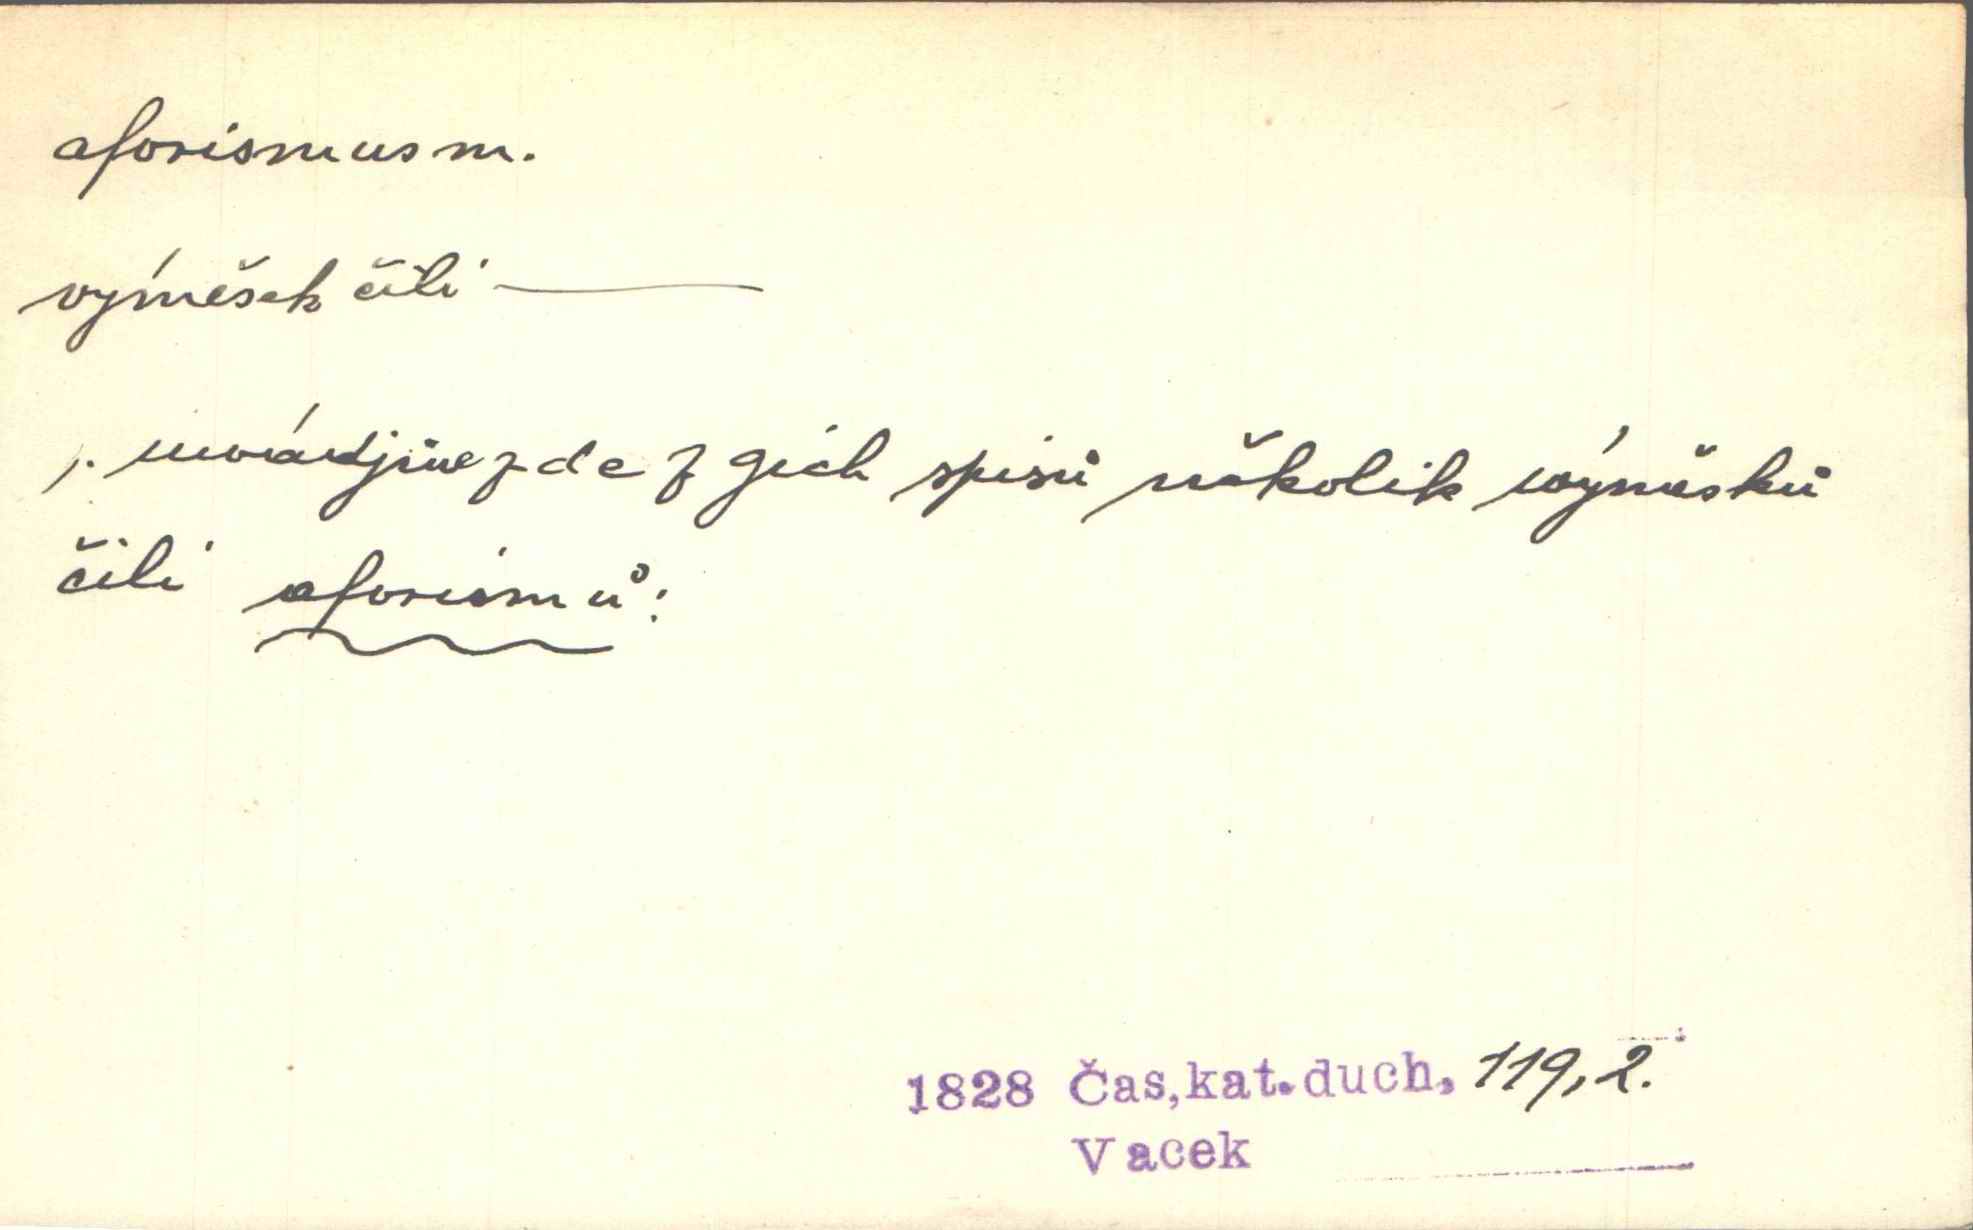 aforismus m.
výměšek čili —
, uwádjme zde z gich spisů několik wýměsků
čili aforismů:
1828 Čas, kat. duch, 119, 2.
Vacek